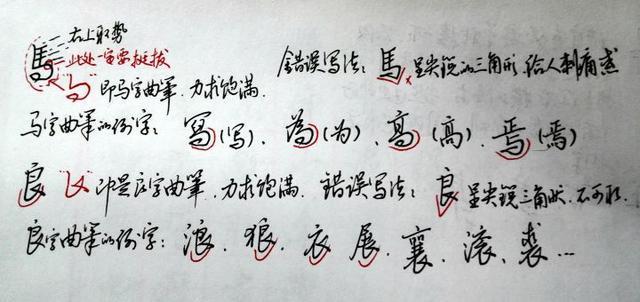 馬 右上取势
此处一定要挺拔 错误写法：馬 呈尖锐的三角形，给人刺痛感
“ㄅ”即马字曲笔，力求饱满.
马字曲笔的例字：寫(写)、為(为)、高(高)、焉(焉)
良 即是良字曲笔，力求饱满. 错误写法：良 呈尖锐三角状，不可取.
良字曲笔的例字：浪、狼、衣、展、襄、滚、裘…